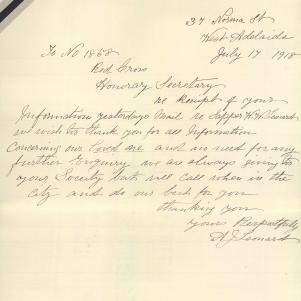 37 Norma St
West Adelaide
July 17 1918
To No 1858
Red Cross
Honorary Secretary
re Receipt of yours
Information yesterdays Mail re Sapper H. H. Leonard
wish to thank you for all Information
Concerning our loved one and no need for any
further Enquiry we are always giving to
your Society but will call when in the
City and do our best for you
thanking you
yours Respectfully
A J Leonard